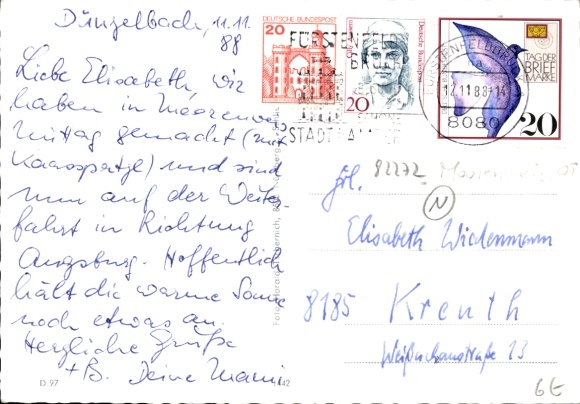 Dünzelbach, 11.11.
88
Liebe Elisabeth, wir
haben in Moorenweis
Mittag gemacht (mit
Kaasspatzl) und sind
nun auf der Weiter-
fahrt in Richtung
Augsburg. Hoffentlich
hält die warme Sonne
noch etwas an.
Herzliche Grüße
+B. Deine Mami
D 97
42
20
DEUTSCHE BUNDESPOST
20
Deutsche Bundespost
TAG DER
BRIEF
MARKE
20
FÜRSTENFELD
BRUCK
STADT
FÜRSTENFELDBRUCK
a
12.11.88-14
8080
82272
Frl.
N
Elisabeth Wiedenmann
8185 Kreuth
23
6E